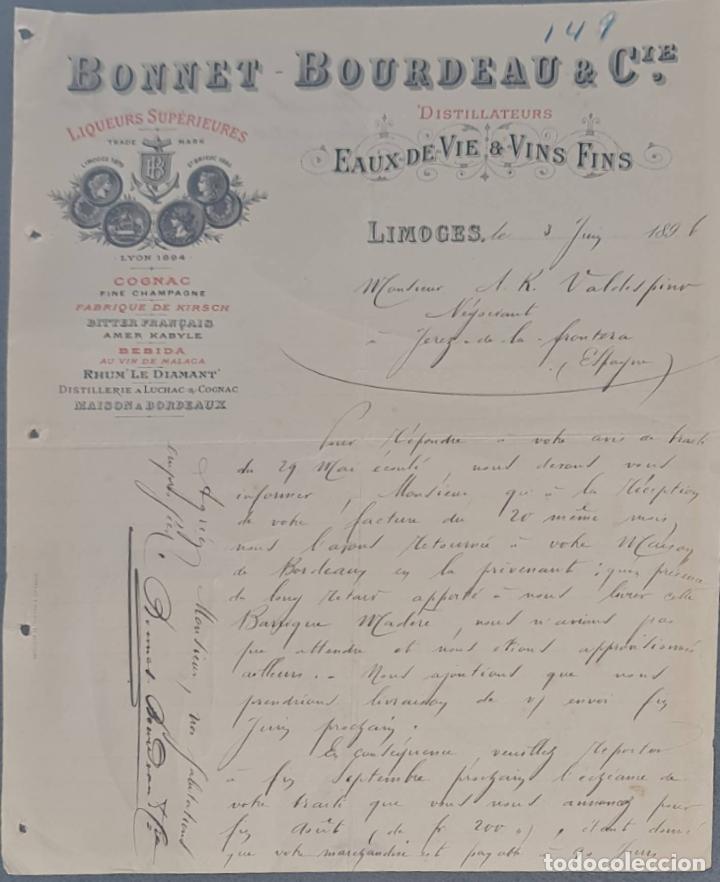 149
BONNET - BOURDEAU & CIE.
LIQUEURS SUPÉRIEURES
TRADE MARK
LIMOGES 1879
ST BRIEUC 1882
LYON 1894
DISTILLATEURS
EAUX-DE-VIE & VINS FINS
COGNAC
FINE CHAMPAGNE
FABRIQUE DE KIRSCH
BITTER FRANÇAIS
AMER KABYLE
BEBIDA
AU VIN DE MALAGA
RHUM "LE DIAMANT"
DISTILLERIE A LUCHAC & COGNAC
MAISON A BORDEAUX
LIMOGES, le 3 Juin 1896
Monsieur A. R. Valdespino
Négociant
à Jerez-de-la-frontera
(Espagne)
Pour Répondre à votre avis de traite
du 29 Mai écoulé, nous devons vous
informer, Monsieur que à la Réception
de votre facture du 20 même mois,
nous l'avons Retournée à votre Maison
de Bordeaux en la prévenant : qu'en présence
du long Retard apporté à nous livrer cette
Barrique Madère, nous n'avions pas
pu attendre et nous étions approvisionnés
ailleurs. - Nous ajoutions que nous
prendrions livraison de v/ envoi fin
Juin prochain.
En conséquence, veuillez Reporter
à fin Septembre prochain l'échéance de
votre traite que vous nous annoncez pour
fin août (de fr 200 "), étant donné
que votre marchandise est payable à 90 jours
Agréez Monsieur, nos salutations
empressées.
Bonnet-Bourdeau & Cie
todocoleccion.net